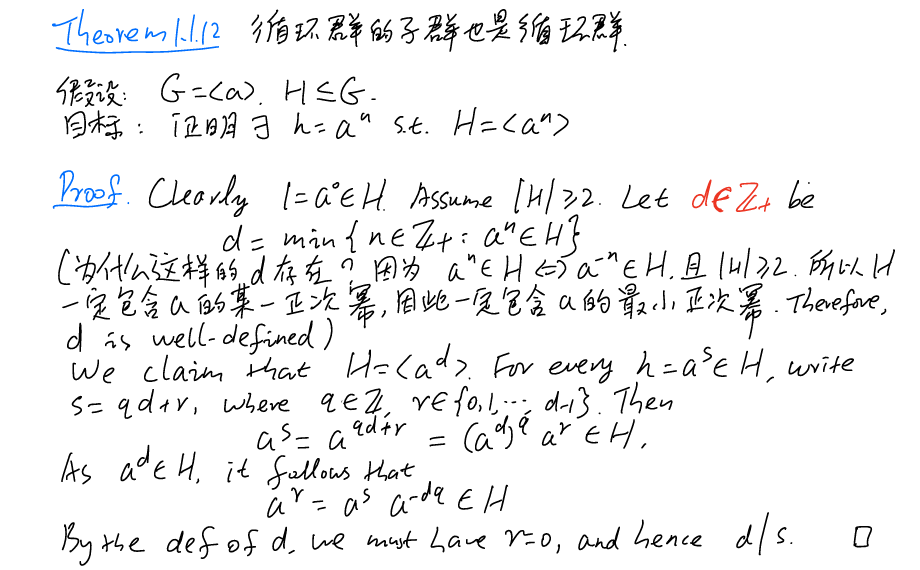 Theorem 1.1.12 循环群的子群也是循环群.
假设: G=<a>. H≤G.
目标: 证明∃ h=aⁿ s.t. H=<aⁿ>
Proof. Clearly 1=a⁰∈H. Assume |H|≥2. Let d∈ℤ₊ be
d = min{n∈ℤ₊: aⁿ∈H}
(为什么这样的d存在? 因为 aⁿ∈H ⇔ a⁻ⁿ∈H. 且 |H|≥2. 所以H
一定包含a的某一正次幂, 因此一定包含a的最小正次幂. Therefore,
d is well-defined)
We claim that H=<aᵈ>. For every h=aˢ∈H, write
s=qd+r, where q∈ℤ, r∈{0,1,⋯,d-1}. Then
aˢ = a^{qd+r} = (aᵈ)^q aʳ ∈H.
As aᵈ∈H, it follows that
aʳ = aˢ a^{-dq} ∈ H
By the def of d, we must have r=0, and hence d|s. □